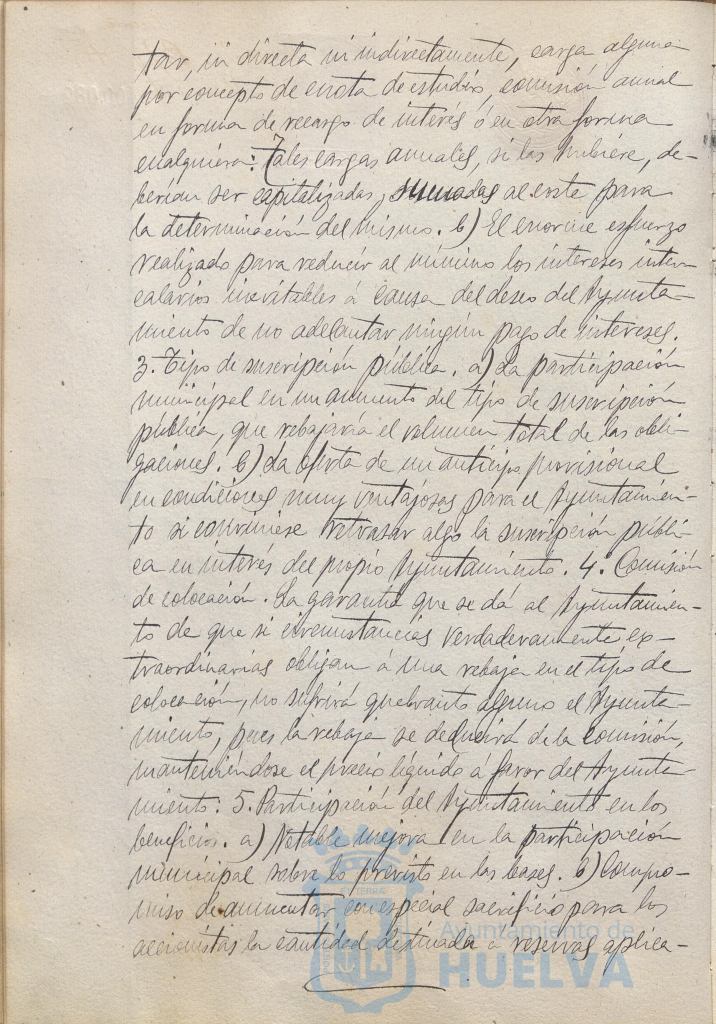 tar, ni directa ni indirectamente, carga alguna
por concepto de cuota de estudio, comisión anual
en forma de recargo de interés ó en otra forma
cualquiera. Tales cargas anuales, si las hubiere, de-
berían ser capitalizadas, sumadas al coste para
la determinación del mismo. b) El enorme esfuerzo
realizado para reducir al mínimo los intereses inter-
calarios inevitables á causa del deseo del Ayunta-
miento de no adelantar ningún pago de intereses.
3. Tipo de suscripción pública. a) La participación
municipal en un aumento del tipo de suscripción
pública, que rebajaría el volumen total de las obli-
gaciones. b) La oferta de un anticipo provisional
en condiciones muy ventajosas para el Ayuntamien-
to si conviniese retrasar algo la suscripción públi-
ca en interés del propio Ayuntamiento. 4. Comisión
de colocación. La garantía que se dá al Ayuntamien-
to de que si circunstancias verdaderamente ex-
traordinarias obligan á una rebaja en el tipo de
colocación, no sufrirá quebranto alguno el Ayunta-
miento, pues la rebaja se deducirá de la comisión,
manteniéndose el precio líquido á favor del Ayunta-
miento. 5. Participación del Ayuntamiento en los
beneficios. a) Notable mejora en la participación
municipal sobre lo previsto en las bases. b) Compro-
miso de aumentar con especial sacrificio para los
accionistas la cantidad destinada a reservas aplica-
Ayuntamiento de
HUELVA